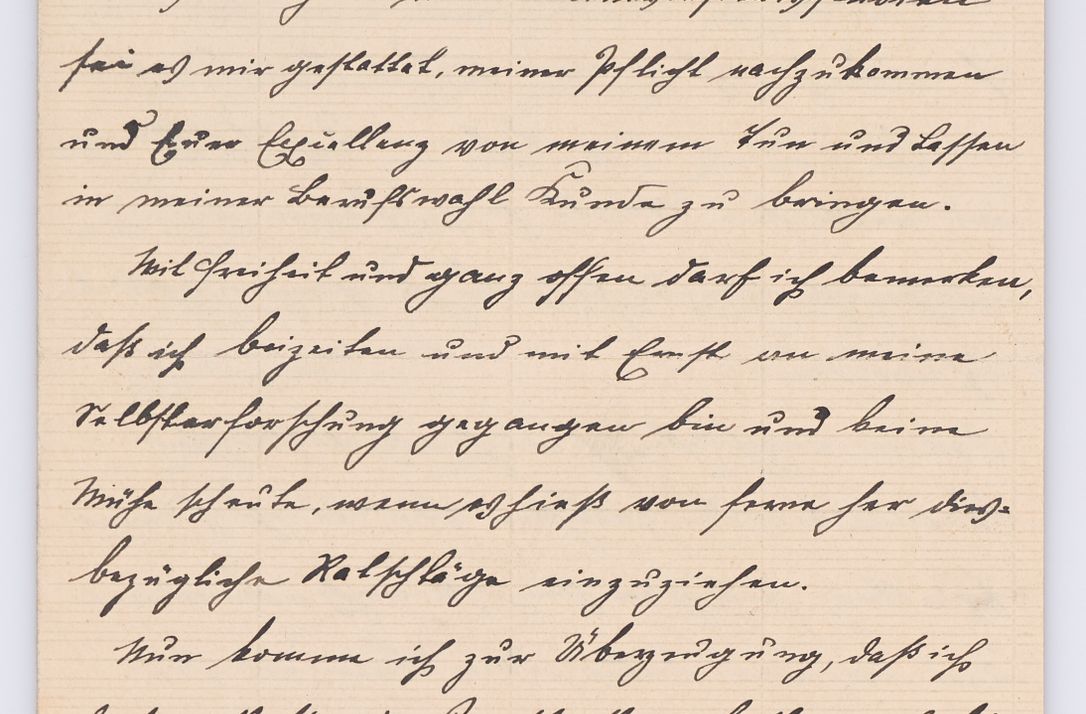 sei es mir gestattet, meiner Pflicht nachzukommen
und Euer Exzellenz von meinem Tun und Lassen
in meiner Berufswahl Kunde zu bringen.
Mit Freiheit und ganz offen darf ich bemerken,
daß ich beizeiten und mit Ernst an meine
Selbsterforschung gegangen bin und keine
Mühe scheute, wenn es hieß von ferne her dies-
bezügliche Ratschläge einzuziehen.
Nun komme ich zur Überzeugung, daß ich